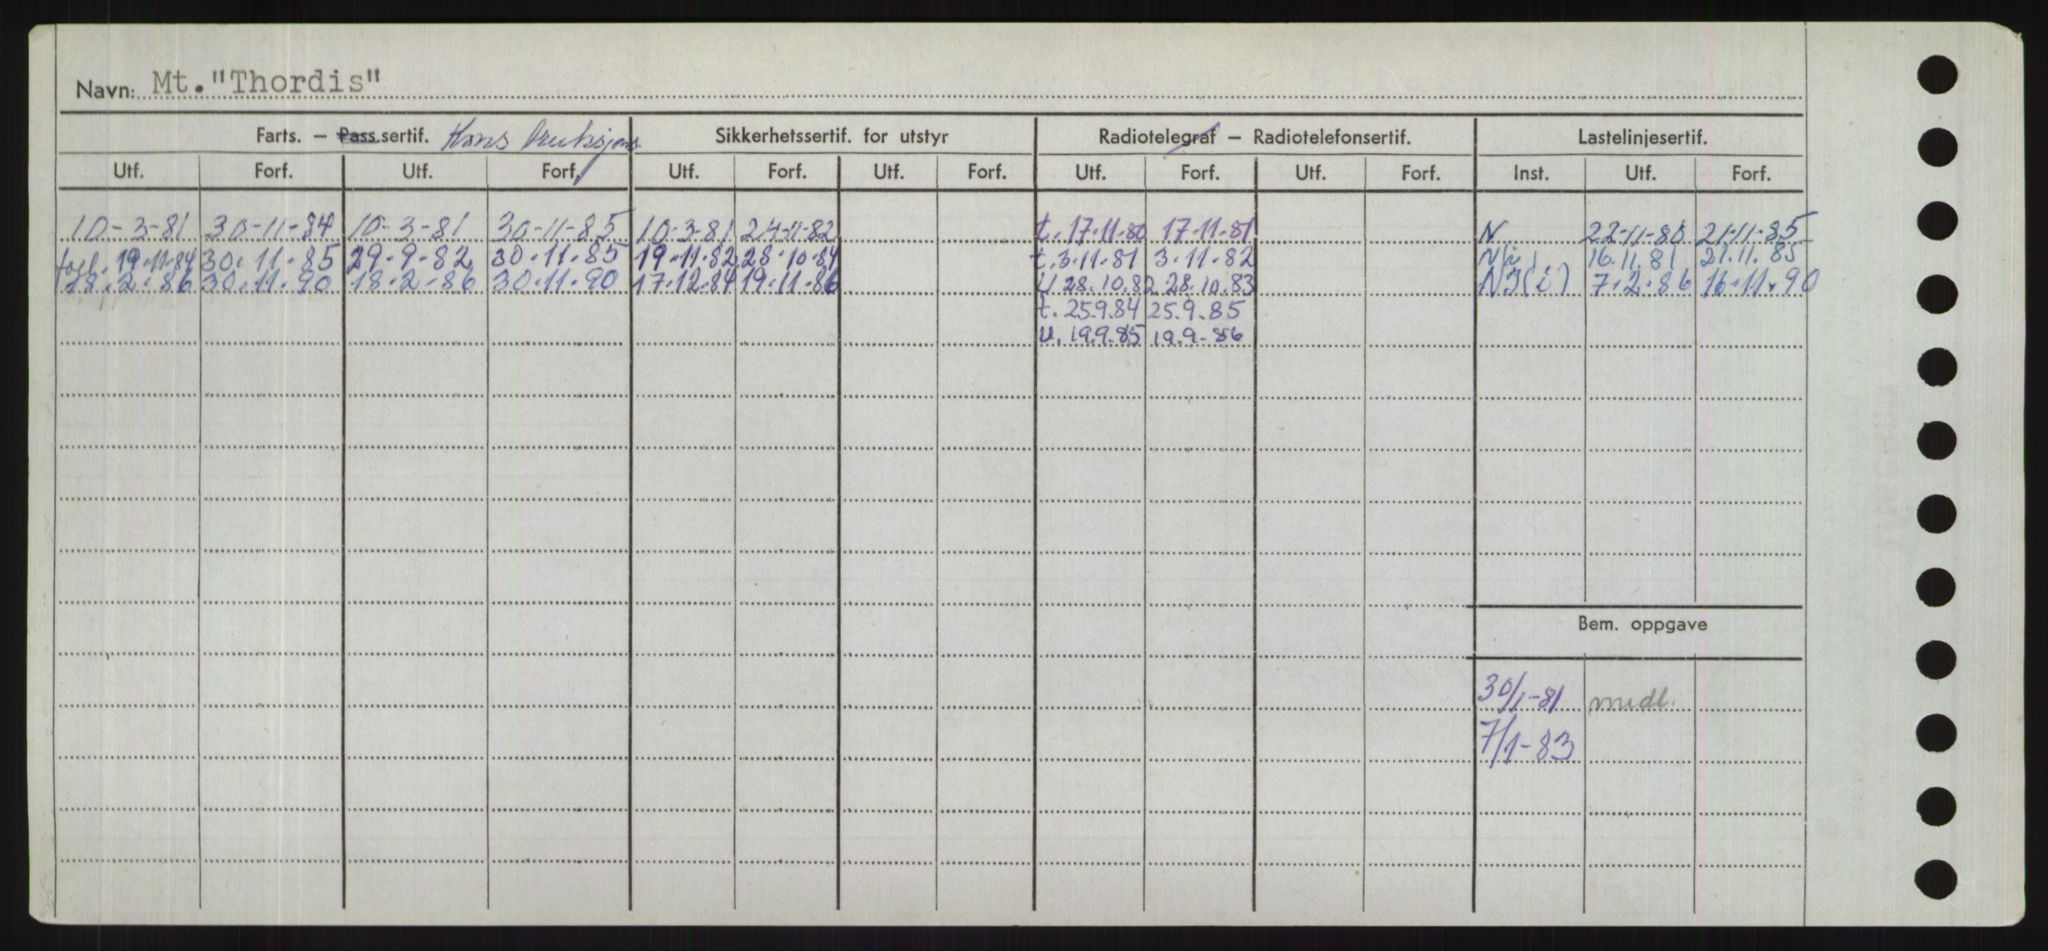 Navn: Mt. "Thordis"
Farts. – Pass.sertif. Kons truksjons. Sikkerhetssertif. for utstyr Radiotelegraf – Radiotelefonsertif. Lastelinjesertif.
Utf. Forf. Utf. Forf. Utf. Forf. Utf. Forf. Utf. Forf. Utf. Forf. Inst. Utf. Forf.
10-3-81 30-11-84 10-3-81 30-11-85 10-3-81 24-11-82 t. 17.11.80 17.11.81 N 22-11-80 21-11-85
forl. 19.11.84 30.11.85 29.9.82 30.11.85 19.11.82 28.10.84 t. 3.11.81 3.11.82 N(i) 16.11.81 21.11.85
18.2.86 30.11.90 18.2.86 30.11.90 17.12.84 19.11.86 U 28.10.82 28.10.83 NI(i) 7.2.86 16.11.90
t. 25.9.84 25.9.85
U. 19.9.85 19.9.86
Bem. oppgave
30/1-81 midl.
7/1-83